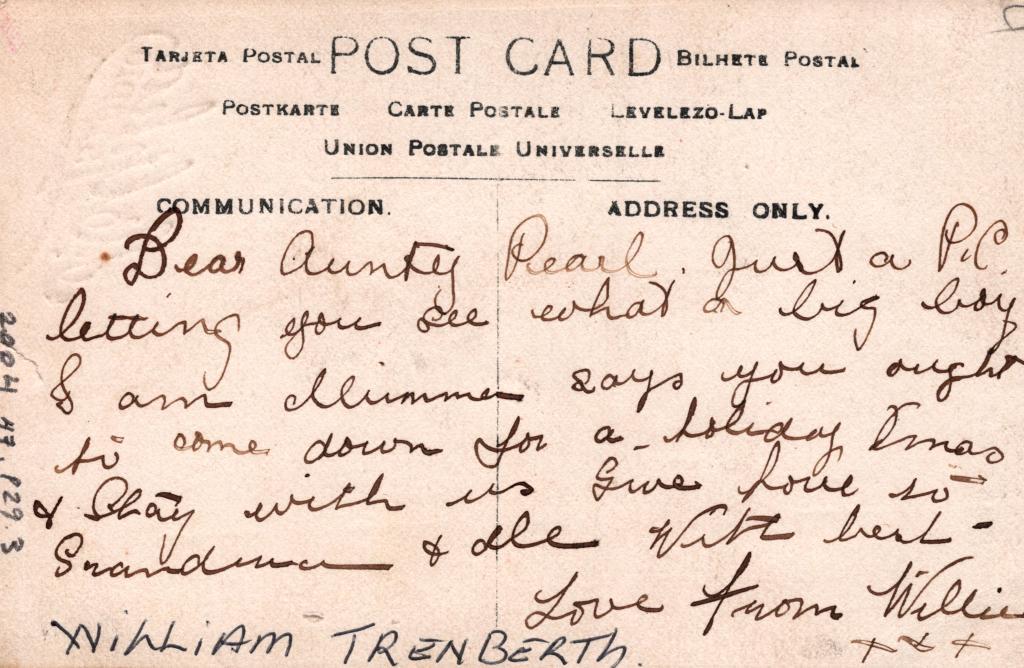 TARJETA POSTAL POST CARD BILHETE POSTAL
POSTKARTE CARTE POSTALE LEVELEZO-LAP
UNION POSTALE UNIVERSELLE
COMMUNICATION. ADDRESS ONLY.
Dear Aunty Pearl. Just a P.C.
letting you see what a big boy
I am Mumma says you ought
to come down for a holiday Xmas
& Stay with us Give love to
Grandma & all With best
Love from Willie
x x x
WILLIAM TRENBERTH.